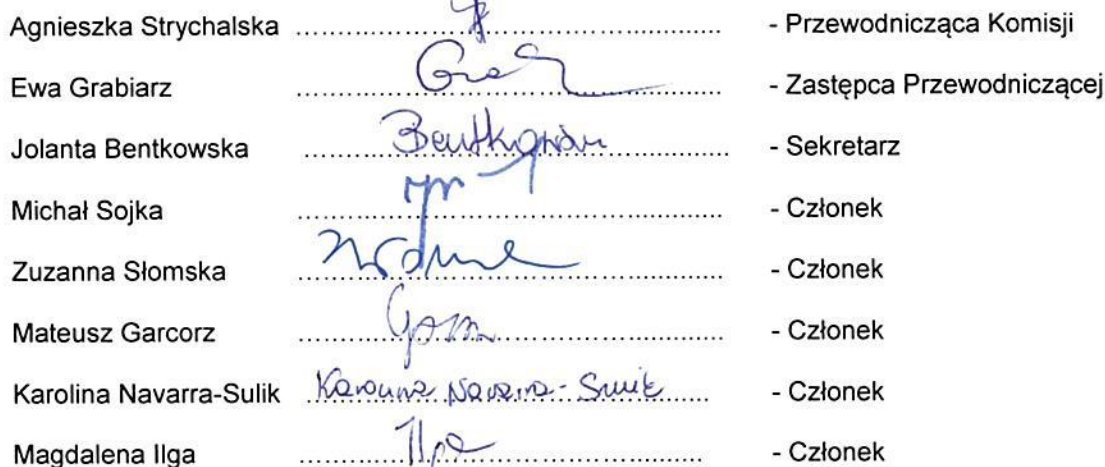 Agnieszka Strychalska ........................ - Przewodnicząca Komisji
Ewa Grabiarz ........................ - Zastępca Przewodniczącej
Jolanta Bentkowska ........................ - Sekretarz
Michał Sojka ........................ - Członek
Zuzanna Słomska ........................ - Członek
Mateusz Garcorz ........................ - Członek
Karolina Navarra-Sulik Karolina Navarra-Sulik - Członek
Magdalena Ilga Ilga - Członek